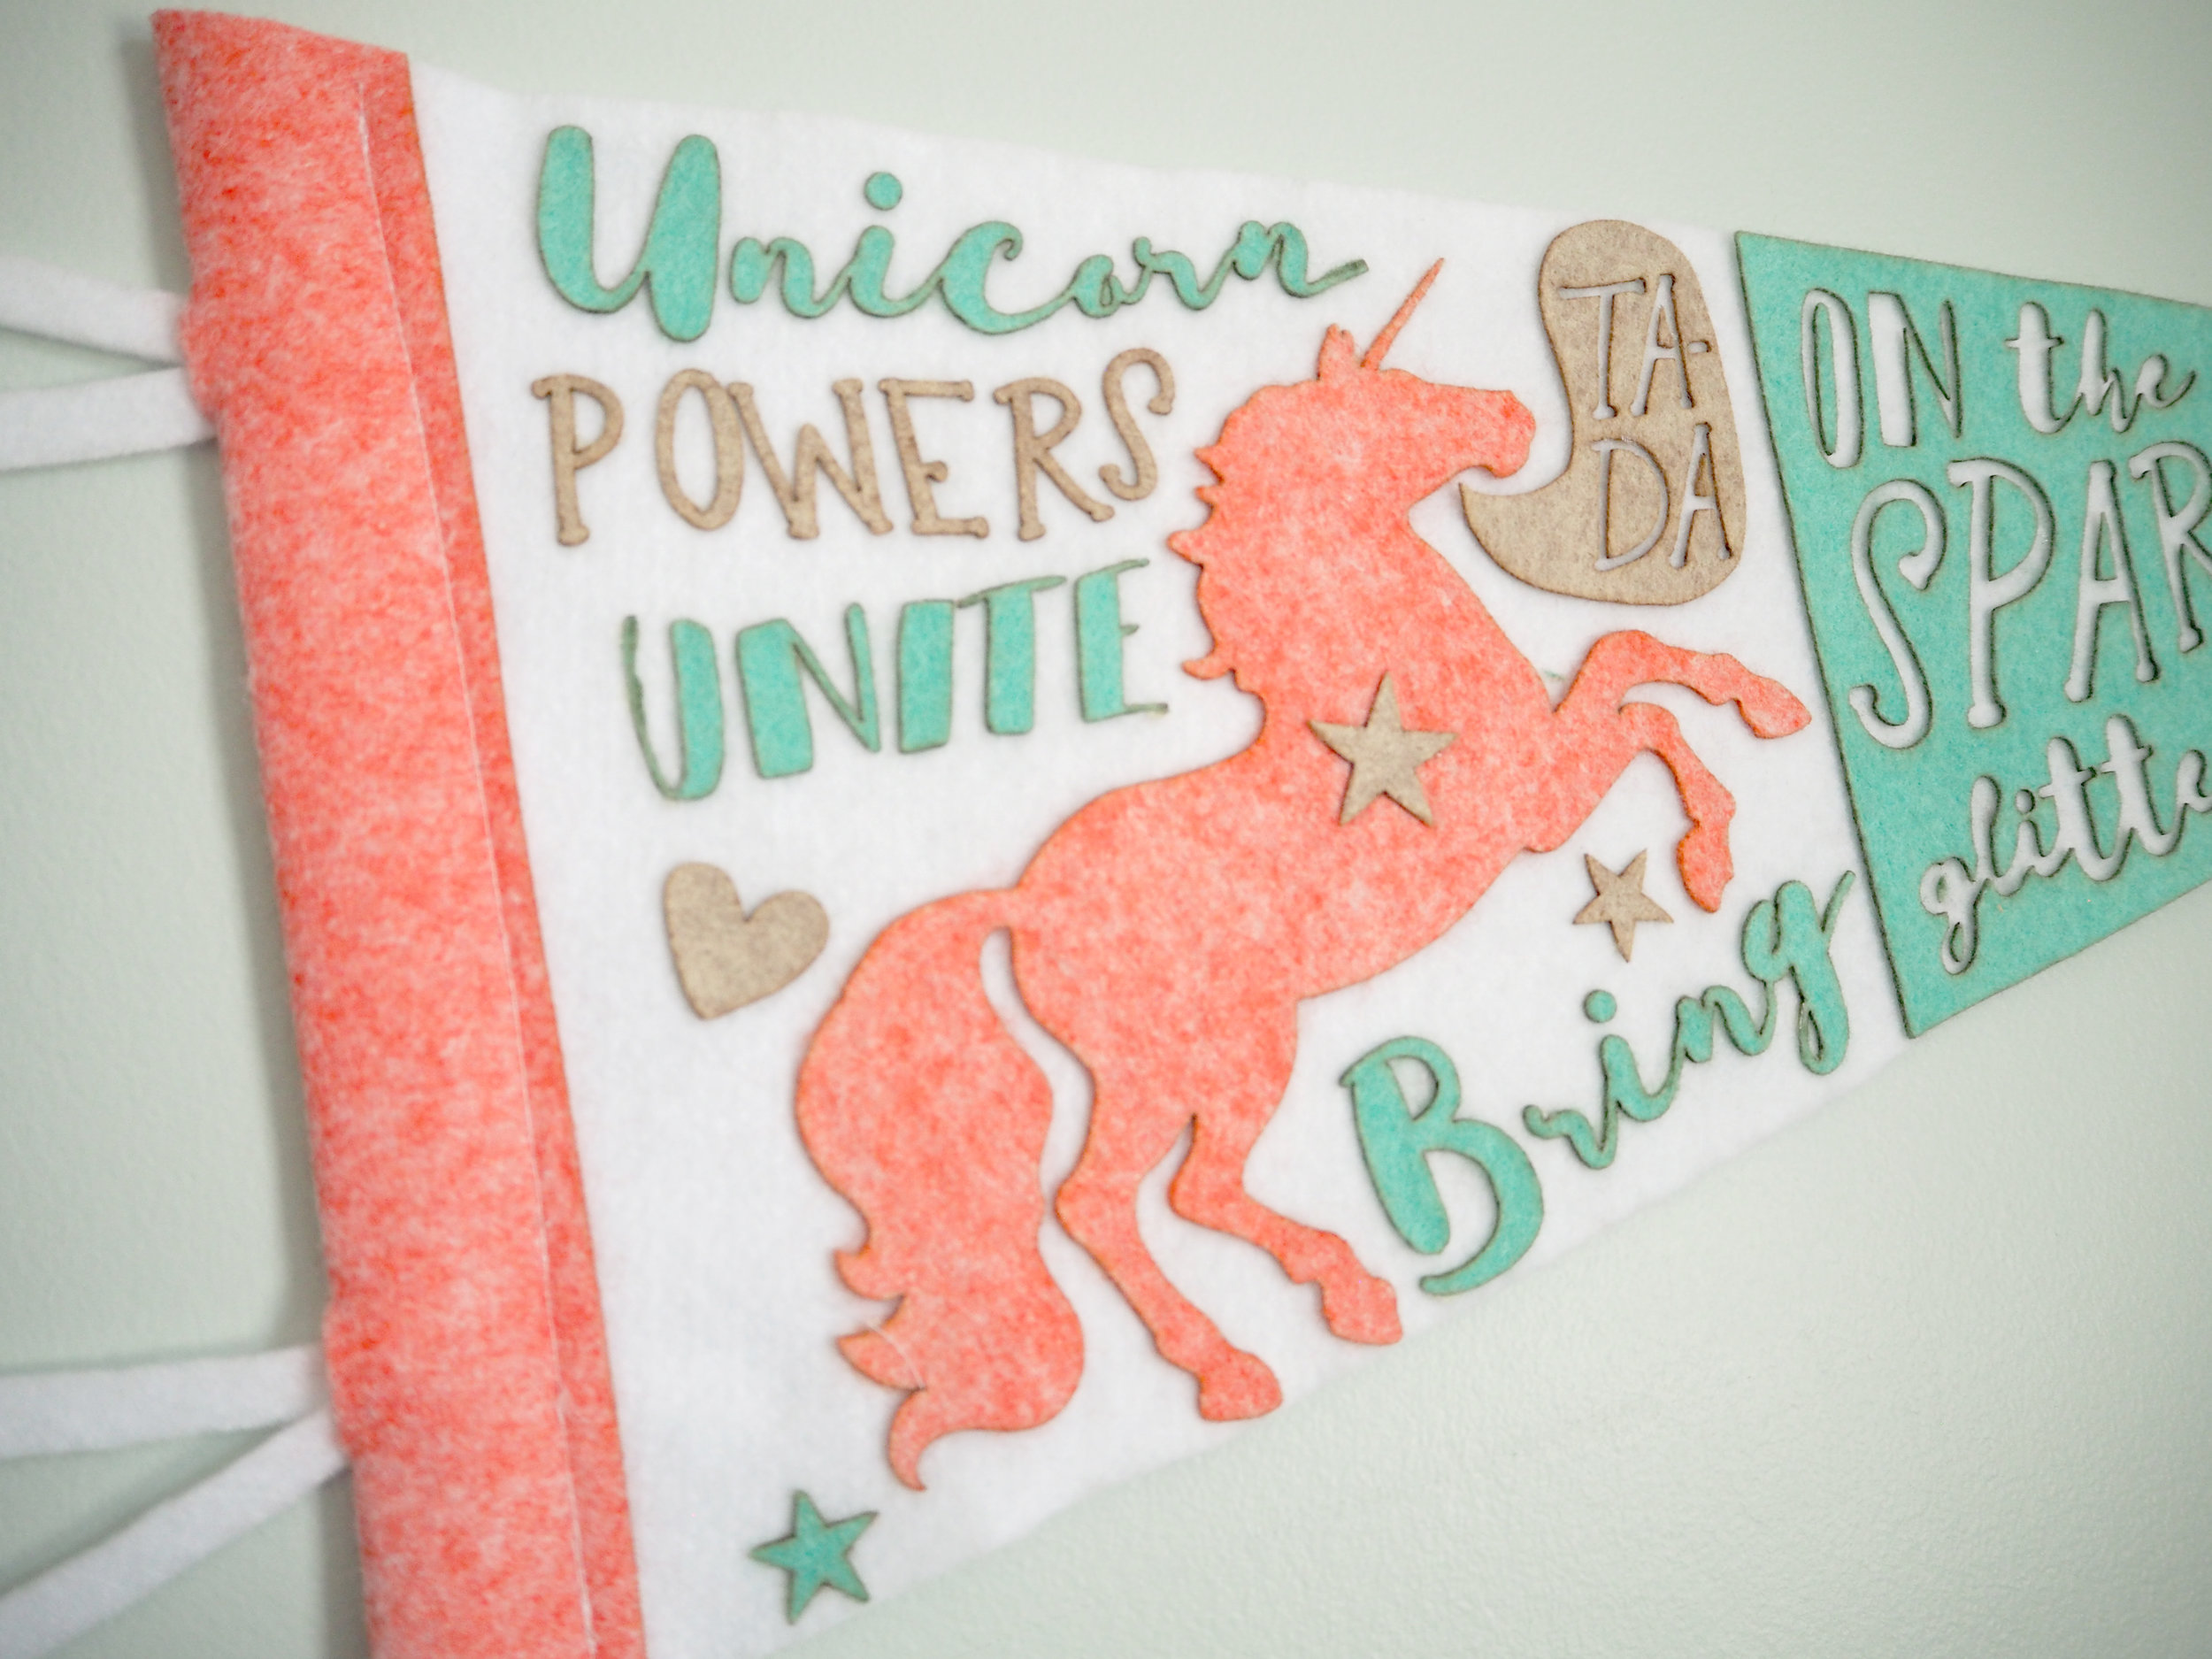 Unicorn
POWERS
UNITE
TA-
DA
Bring
ON the
SPAR
glitte